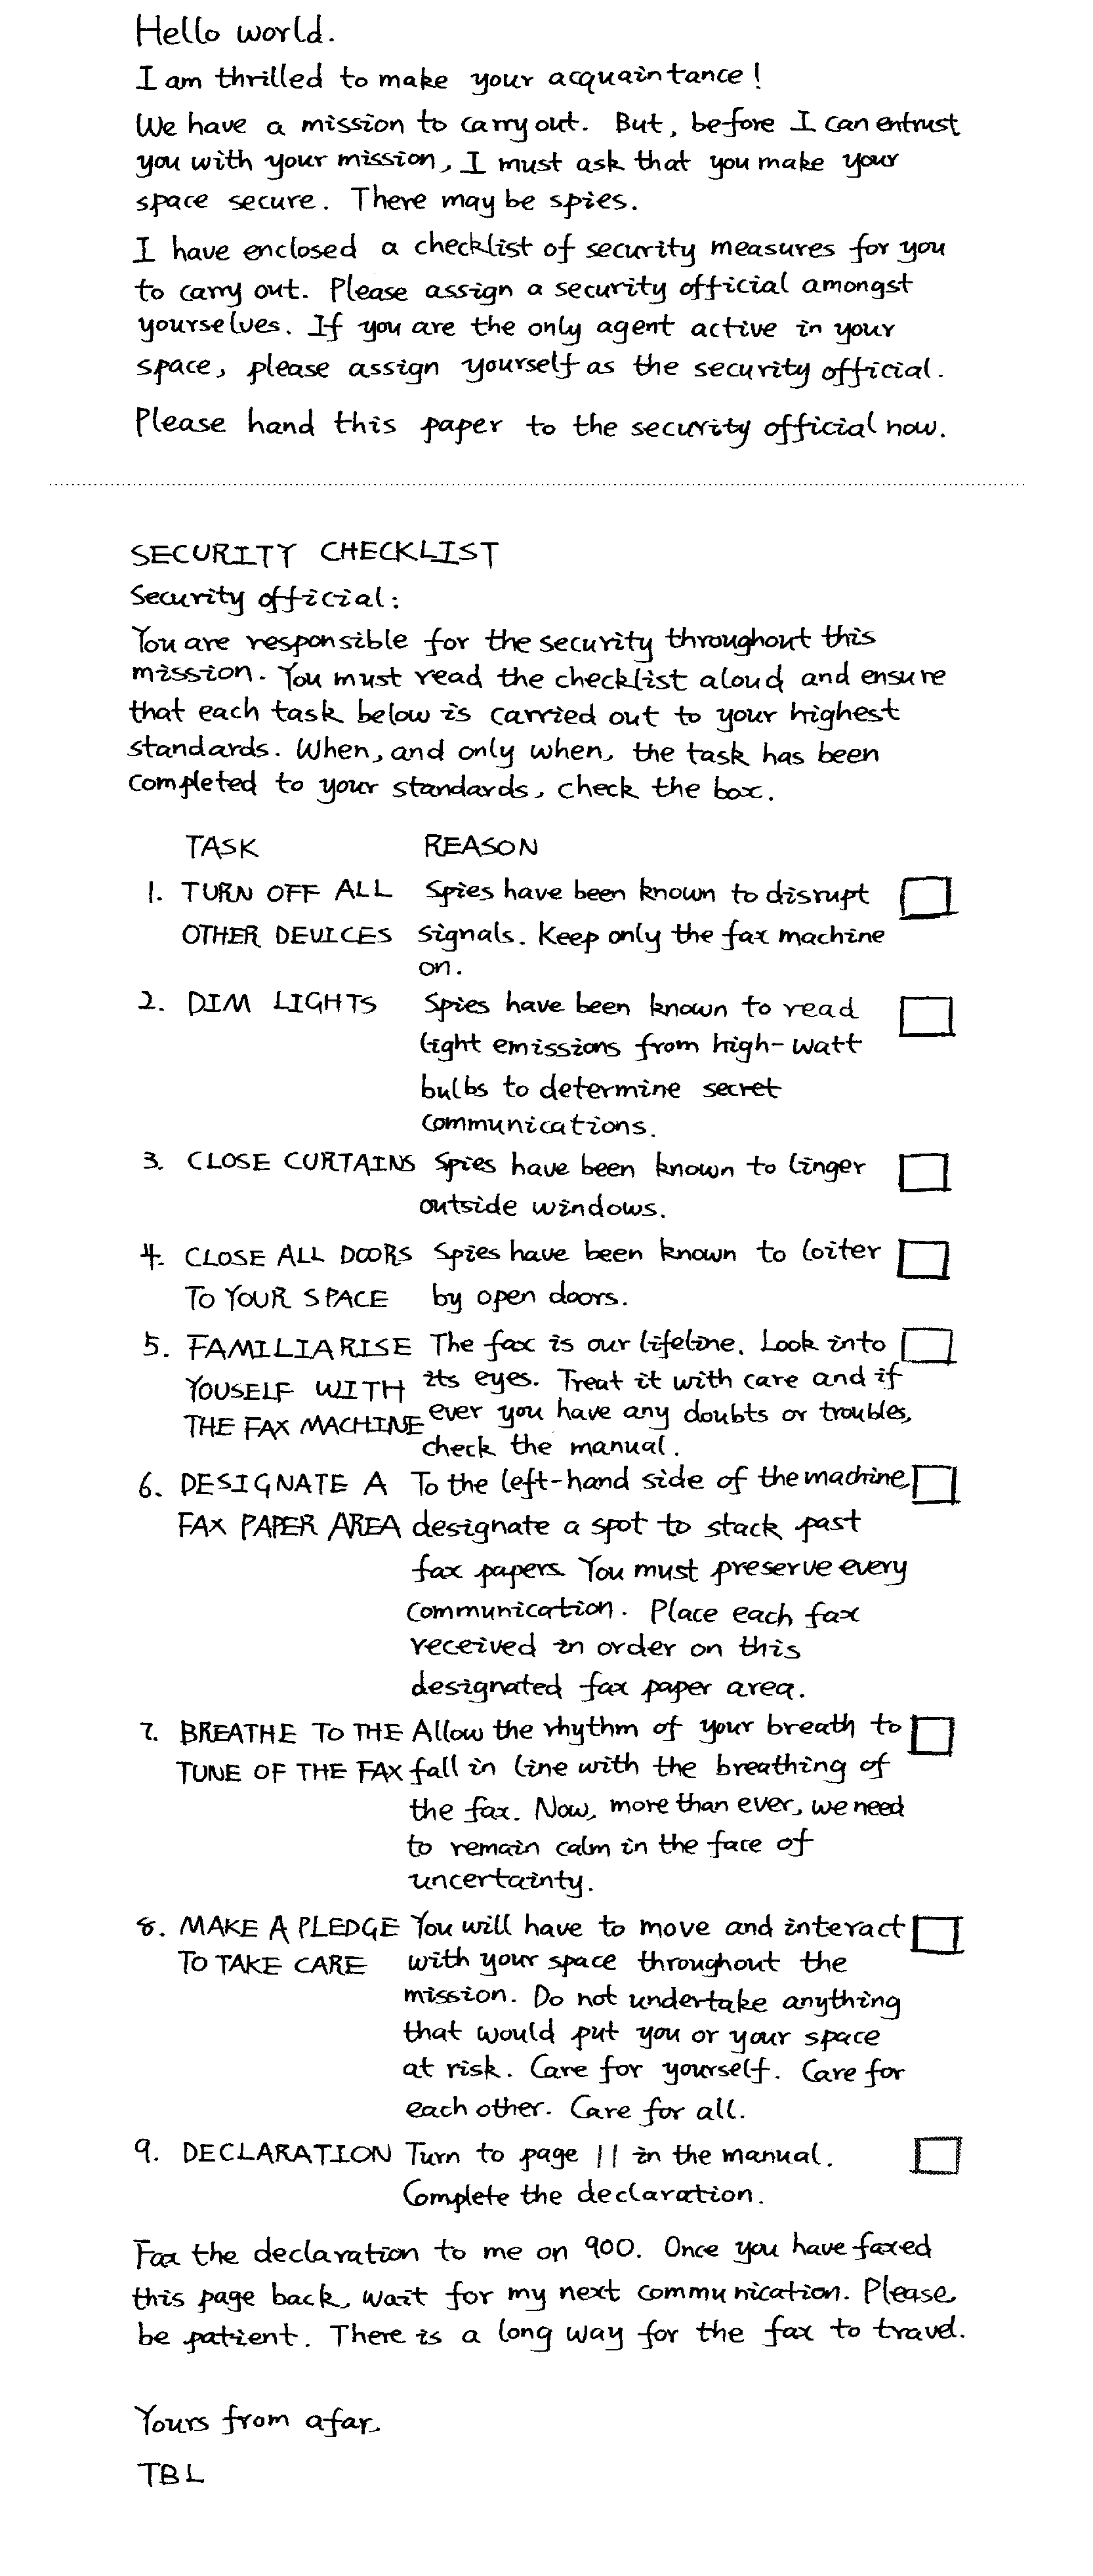 Hello world.
I am thrilled to make your acquaintance!
We have a mission to carry out. But, before I can entrust
you with your mission, I must ask that you make your
space secure. There may be spies.
I have enclosed a checklist of security measures for you
to carry out. Please assign a security official amongst
yourselves. If you are the only agent active in your
space, please assign yourself as the security official.
Please hand this paper to the security official now.
SECURITY CHECKLIST
Security official:
You are responsible for the security throughout this
mission. You must read the checklist aloud and ensure
that each task below is carried out to your highest
standards. When, and only when, the task has been
completed to your standards, check the box.
TASK REASON
1. TURN OFF ALL Spies have been known to disrupt
OTHER DEVICES signals. Keep only the fax machine
on.
2. DIM LIGHTS Spies have been known to read
light emissions from high-watt
bulbs to determine secret
communications.
3. CLOSE CURTAINS Spies have been known to linger
outside windows.
4. CLOSE ALL DOORS Spies have been known to loiter
TO YOUR SPACE by open doors.
5. FAMILIARISE The fax is our lifeline. Look into
YOUSELF WITH its eyes. Treat it with care and if
THE FAX MACHINE ever you have any doubts or troubles,
check the manual.
6. DESIGNATE A To the left-hand side of the machine,
FAX PAPER AREA designate a spot to stack past
fax papers. You must preserve every
communication. Place each fax
received in order on this
designated fax paper area.
7. BREATHE TO THE Allow the rhythm of your breath to
TUNE OF THE FAX fall in line with the breathing of
the fax. Now, more than ever, we need
to remain calm in the face of
uncertainty.
8. MAKE A PLEDGE You will have to move and interact
TO TAKE CARE with your space throughout the
mission. Do not undertake anything
that would put you or your space
at risk. Care for yourself. Care for
each other. Care for all.
9. DECLARATION Turn to page 11 in the manual.
Complete the declaration.
Fax the declaration to me on 900. Once you have faxed
this page back, wait for my next communication. Please,
be patient. There is a long way for the fax to travel.
Yours from afar,
TBL